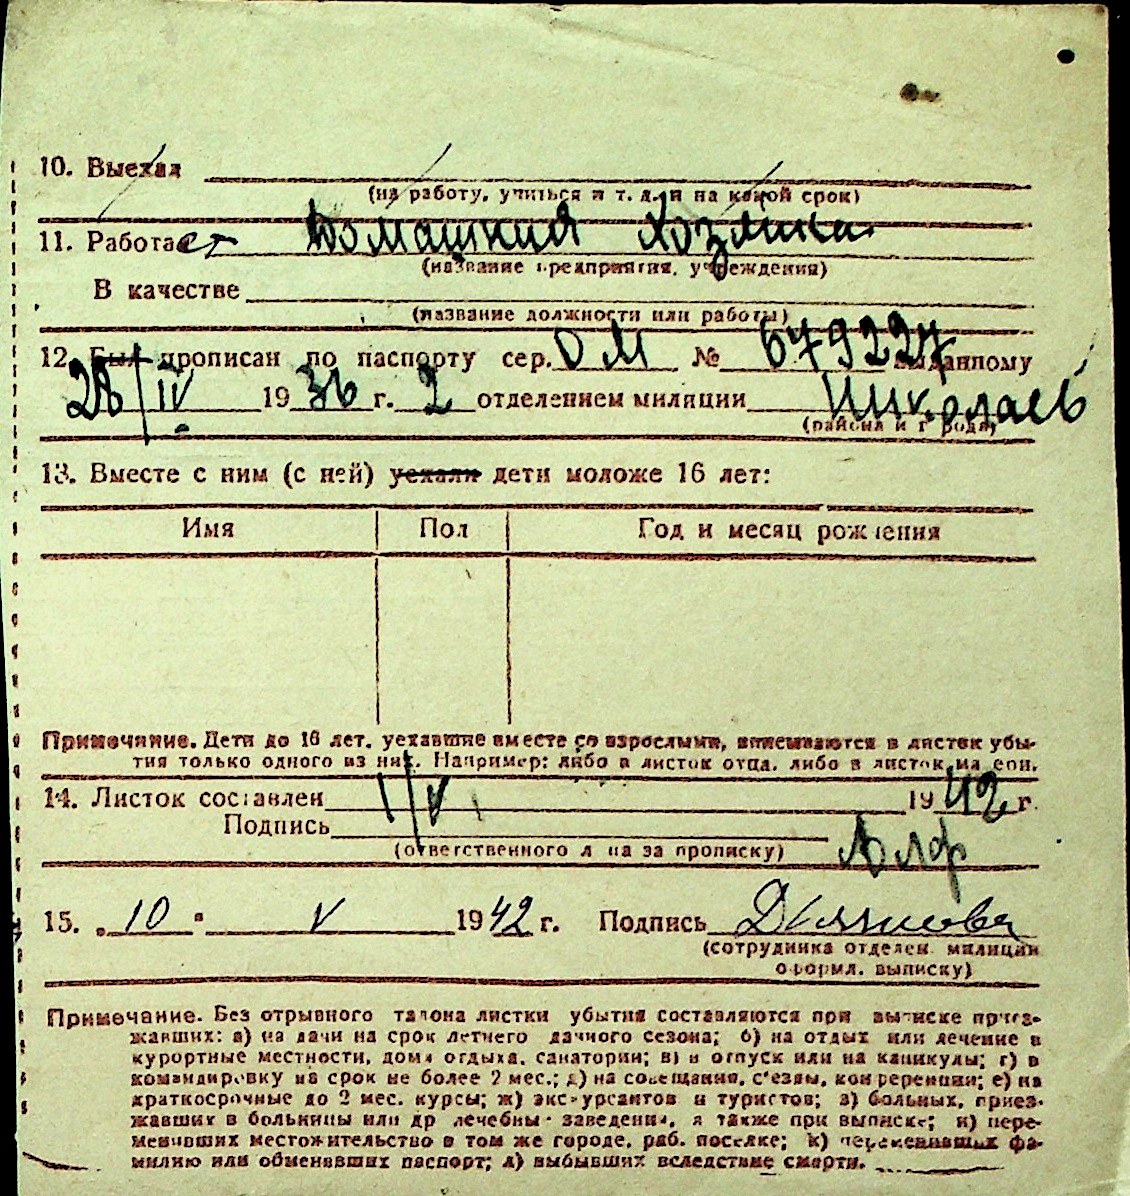 10. Выехал
(на работу, учиться и т. д. и на какой срок)
11. Работает Домашния Хозяйка
(название предприятия, учреждения)
В качестве
(название должности или работы)
12. Был прописан по паспорту сер. ОМ № 679227 выданному
28/IV 1936 г. 2 отделением милиции Николаев
(района и города)
13. Вместе с ним (с ней) уехали дети моложе 16 лет:
Имя Пол Год и месяц рождения
Примечание. Дети до 16 лет, уехавшие вместе со взрослыми, вписываются в листок убы-
тия только одного из них. Например: либо в листок отца, либо в листок матери.
14. Листок составлен 1/V 1942 г.
Подпись
(ответственного лица за прописку)
15. „10" V 1942 г. Подпись
(сотрудника отделен. милиции
оформл. выписку)
Примечание. Без отрывного талона листки убытия составляются при выписке приез-
жавших: а) на дачи на срок летнего дачного сезона; б) на отдых или лечение в
курортные местности, дома отдыха, санатории; в) в отпуск или на каникулы; г) в
командировку на срок не более 2 мес.; д) на совещания, с'езды, конференции; е) на
краткосрочные до 2 мес. курсы; ж) экскурсантов и туристов; з) больных, приез-
жавших в больницы или др лечебные заведения, а также при выписке; и) пере-
менивших местожительство в том же городе, раб. поселке; к) переменивших фа-
милию или обменявших паспорт; л) выбывших вследствие смерти.